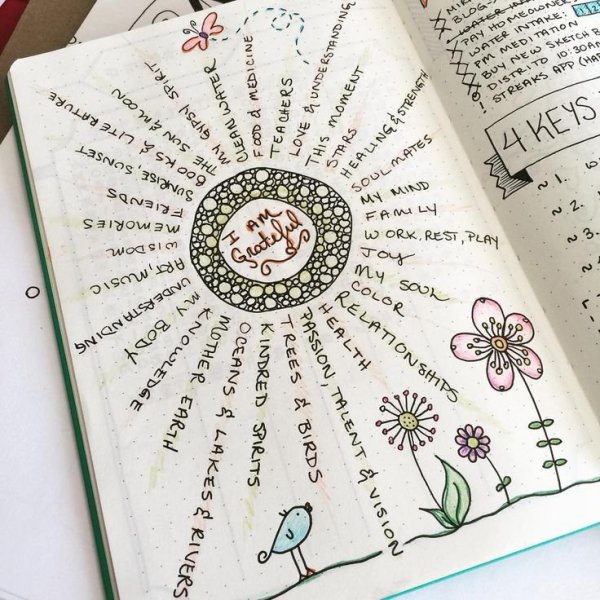 I AM
Grateful
CLEAN WATER
FOOD & MEDICINE
TEACHERS
LOVE & UNDERSTANDING
THIS MOMENT
STARS
HEALING & STRENGTH
SOULMATES
MY MIND
FAMILY
WORK, REST, PLAY
JOY
MY SOUL
COLOR
RELATIONSHIPS
HEALTH
PASSION, TALENT & VISION
TREES & BIRDS
KINDRED SPIRITS
OCEANS & LAKES & RIVERS
MOTHER EARTH
KNOWLEDGE
MY BODY
UNDERSTANDING
ART/MUSIC
WISDOM
MEMORIES
FRIENDS
SUNRISE SUNSET
BOOKS & LITERATURE
THE SUN & MOON
MY GYPSY SPIRIT
BLOG
WATER INTAKE
PAY HOMEOWNE
WATER INTAKE:
PM MEDITATION
BUY NEW SKETCH B
DISTRICT 10:30AM
STREAKS APP (HA
4 KEYS
~ 1.
~ 2.
~ 3.
~ 4.